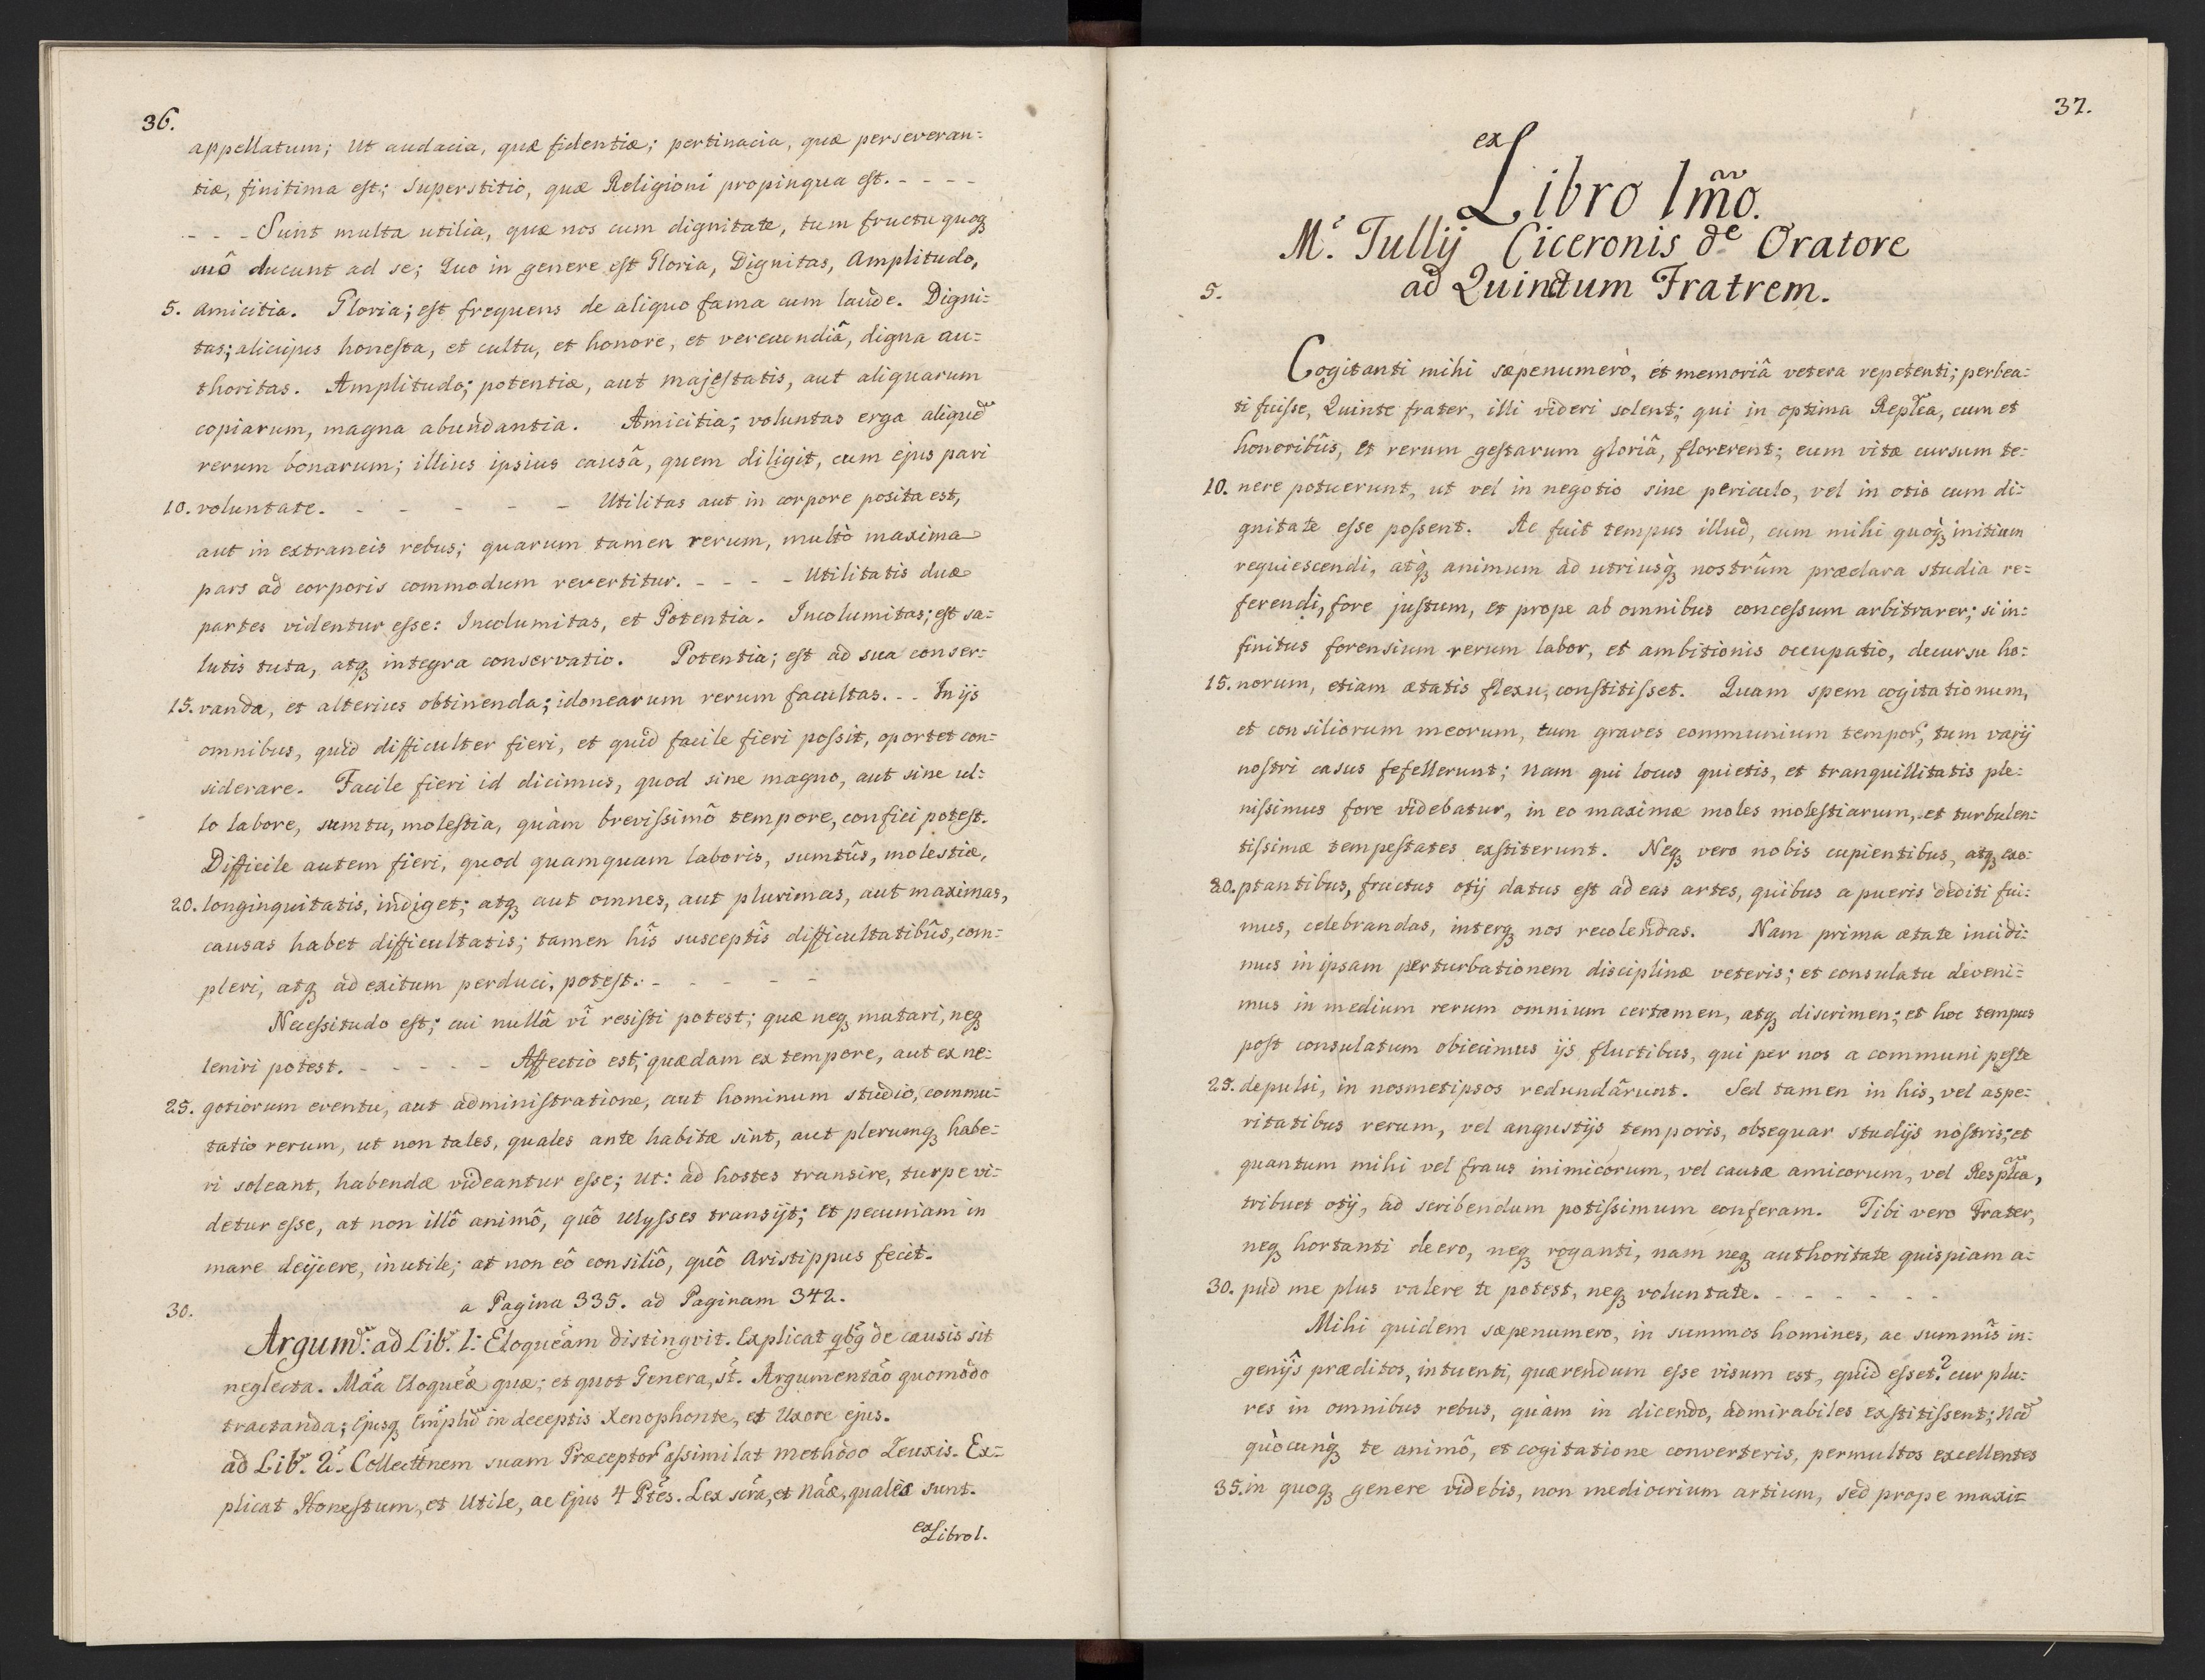 36.
appellatum; Ut audacia, quæ fidentiæ; pertinacia, quæ perseveran=
tiæ, finitima est; Superstitio, quæ Religioni propinqua est. - - - -
- - - Sunt multa utilia, quæ nos cum dignitate, tum fructu quoq
suô ducunt ad se; Quo in genere est Gloria, Dignitas, Amplitudo,
5. Amicitia. Gloria; est frequens de aliquo fama cum laude. Digni=
tas; alicujus honesta, et cultu, et honore, et verecundiâ, digna au=
thoritas. Amplitudo; potentiæ, aut majestatis, aut aliquarum
copiarum, magna abundantia. Amicitia; voluntas erga aliquē
rerum bonarum; illius ipsius causâ, quem diligit, cum ejus pari
10. voluntate. - - - - - Utilitas aut in corpore posita est,
aut in extraneis rebus; quarum tamen rerum, multò maxima
pars ad corporis commodum revertitur. - - - - Utilitatis duæ
partes videntur esse: Incolumitas, et Potentia. Incolumitas; est sa=
lutis tuta, atq integra conservatio. Potentia; est ad sua conser=
15. vanda, et alterius obtinenda; idonearum rerum facultas. - - In ijs
omnibus, quid difficulter fieri, et quid facile fieri possit, oportet con=
siderare. Facile fieri id dicimus, quod sine magno, aut sine ul=
lo labore, sumtu, molestia, quàm brevissimô tempore, confici potest.
Difficile autem fieri, quod quamquam laboris, sumtûs, molestiæ,
20. longinquitatis, indiget; atq aut omnes, aut plurimas, aut maximas,
causas habet difficultatis; tamen hîs susceptîs difficultatibûs, com=
pleri, atq ad exitum perduci, potest. - - - - -
Necessitudo est; cui nullâ vî resisti potest; quæ neq mutari, neq
leniri potest. - - - - - Affectio est; quædam ex tempore, aut ex ne=
25. gotiorum eventu, aut administratione, aut hominum studio, commu=
tatio rerum, ut non tales, quales ante habitæ sint, aut plerumq habe=
ri soleant, habendæ videantur esse; ut: ad hostes transire, turpe vi=
detur esse, at non illô animô, quô Ulysses transijt; Et pecuniam in
mare deijcere, inutile; at non eô consiliô, quô Aristippus fecit.
30. a Pagina 335. ad Paginam 342.
Argum: ad Lib. 1: Eloqueãm distingvit. Explicat de causis sit
neglecta. Mãa Eloqueæ quæ; et quot Genera, st. Argumentão quomodo
tractanda; Ejusq in deceptis Xenophonte, et Uxore ejus.
ad Lib. 2. Collecttnem suam Præceptor assimilat methodo Zeuxis. Ex=
plicat Honestum, et Utile, ac Ejus 4 Ptes. Lex et qualēs sunt.
ex Libro 1.
37.
ex
Libro 1m̃o.
M. Tullij Ciceronis de Oratore
5. ad Quinctum Fratrem.
Cogitanti mihi sæpenumerò, et memoriâ vetera repetenti; perbea=
ti fuisse, Quinte frater, illi videri solent; qui in optima Replca, cum et
honoribûs, et rerum gestarum gloriâ, florerent; eum vitæ cursum te=
10. nere potuerunt, ut vel in negotio sine periculo, vel in otio cum di=
gnitate esse possent. Ac fuit tempus illud, cum mihi quoq initium
requiescendi, atq animum ad utriusq nostrûm præclara studia re=
ferendi, fore justum, et prope ab omnibus concessum arbitrarer; si in=
finitus forensium rerum labor, et ambitionis occupatio, decursu ho=
15. norum, etiam ætatis flexu, constitisset. Quam spem cogitationum,
et consiliorum meorum, tum graves communium tempor, tum varij
nostri casus fefellerunt; Nam qui locus quietis, et tranquillitatis ple=
nissimus fore videbatur, in eo maximæ moles molestiarum, et turbulen=
tissimæ tempestates exstiterunt. Neq vero nobis cupientibus, atq exo=
20. ptantibus, fructus otij datus est ad eas artes, quibus a pueris dediti fui=
mus, celebrandas, interq nos recolendas. Nam prima ætate incidi=
mus in ipsam perturbationem disciplinæ veteris; et consulatu deveni=
mus in medium rerum omnium certamen, atq discrimen; et hoc tempus
post consulatum obiecimus ijs fluctibus, qui per nos a communi peste
25. depulsi, in nosmetipsos redundârunt. Sed tamen in his, vel aspe=
ritatibus rerum, vel angustijs temporis, obsequar studijs nostris; et
quantum mihi vel fraus inimicorum, vel causæ amicorum, vel Resplca,
tribuet otij, ad scribendum potissimum conferam. Tibi vero Frater,
neq hortanti deero, neq roganti, nam neq authoritate quispiam a=
30. pud me plus valere te potest, neq voluntate. - - - - - -
Mihi quidem sæpenumero, in summos homines, ac summîs in=
genijs præditos, intuenti, quærendum esse visum est, quid esset? cur plu=
res in omnibus rebus, quàm in dicendo, admirabiles exstitissent; Nā
quòcunq te animô, et cogitatione converteris, permultos excellentes
35. in quoq genere videbis, non mediocrium artium, sed prope maxi=